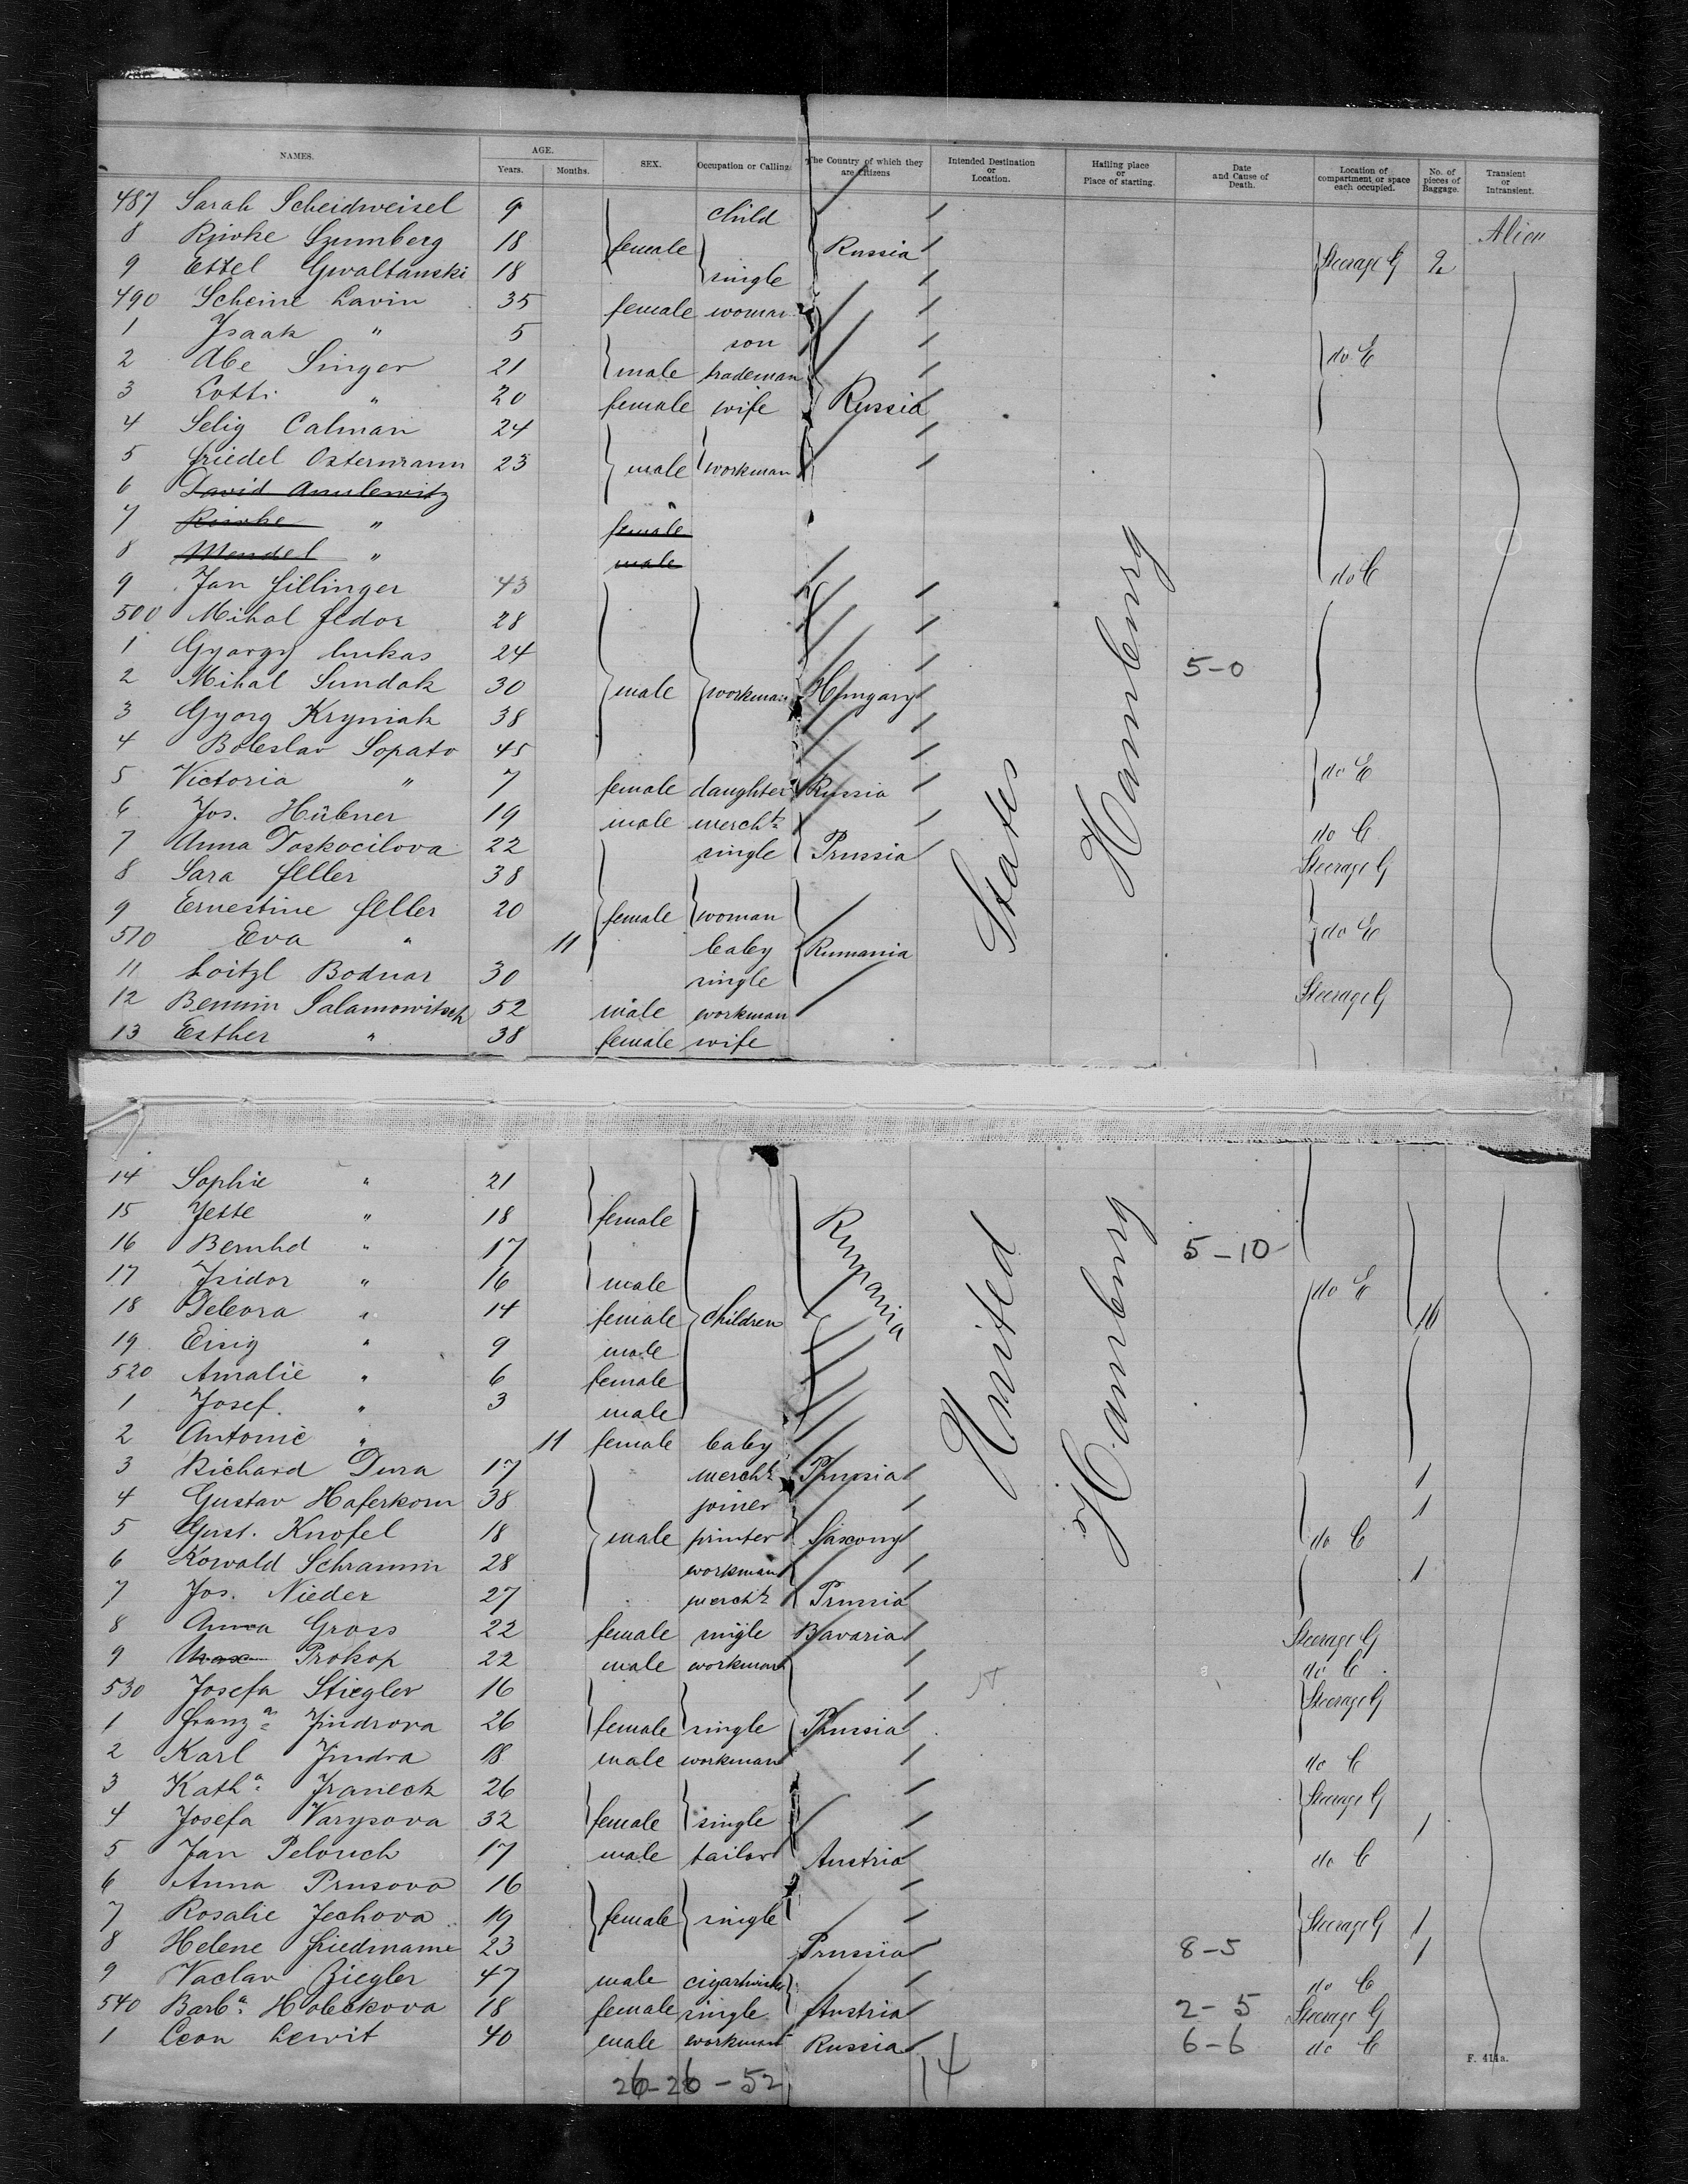 NAMES. AGE. Years. Months. SEX. Occupation or Calling. The Country of which they are Citizens Intended Destination or Location. Hailing place or Place of starting. Date and Cause of Death. Location of compartment or space each occupied. No. of pieces of Baggage. Transient or Intransient.
487 Sarah Scheidweisel 9 child
8 Rjivke Szumberg 18 female Russia Steerage G 2 Alien
9 Ettel Gwaltanski 18 single
490 Scheine Lavin 35 female woman
1 Isaak " 5 son do E
2 Abe Singer 21 male trademan
3 Lotti " 20 female wife Russia
4 Selig Calman 24
5 Friedel Ostermann 23 male workman
6 David Amulewitz
7 Riwke " female
8 Mendel " male
9 Jan Fillinger 43 do C
500 Mihal Fedor 28
1 Gyorgy Lukas 24
2 Mihal Sundak 30 male workman Hungary 5-0
3 Gyorg Kryniak 38
4 Boleslav Sopato 45
5 Victoria " 7 female daughter Russia do E
6 Jos. Hübner 19 male mercht
7 Anna Doskocilova 22 single Prussia do C
8 Sara Feller 38 Steerage G
9 Ernestine Feller 20 female woman
510 Eva " 11 baby Rumania do E
11 Loitzl Bodnar 30 single
12 Benmin Salamowitsch 52 male workman Steerage G
13 Esther " 38 female wife
States
Hamburg
14 Sophie " 21
15 Jette " 18 female Rumania
16 Bernhd " 17 5-10
17 Isidor " 16 male do E
18 Debora " 14 female children 10
19 Eisig " 9 male
520 Amalie " 6 female
1 Josef " 3 male
2 Antonie " 11 female baby
3 Richard Dura 17 mercht Prussia 1
4 Gustav Haferkorn 38 joiner 1
5 Gust. Knofel 18 male printer Saxony do C
6 Kowald Schramm 28 workman 1
7 Jos. Nieder 27 mercht Prussia
8 Anna Gross 22 female single Bavaria Steerage G
9 Prokop 22 male workman do C
530 Josefa Stiegler 16 Steerage G
1 Franza Jindrova 26 female single Prussia
2 Karl Jindra 18 male workman do C
3 Katha Janeck 26 Steerage G
4 Josefa Varysova 32 female single 1
5 Jan Pelouch 17 male tailor Austria do C
6 Anna Prusova 16
7 Rosalie Jechova 19 female single Steerage G 1
8 Helene Friedmann 23 Prussia 8-5 1
9 Vaclav Ziegler 47 male do C
540 Barba Holeckova 18 female single Austria 2-5 Steerage G
1 Leon Lewit 40 male workman Russia 6-6 do C
United
Hamburg
26-26-52
14
F. 414a.